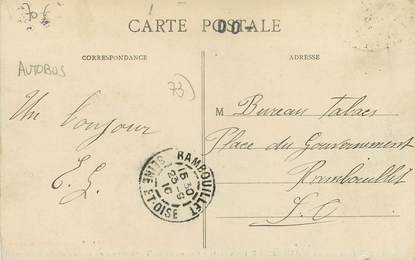 70f
CARTE POSTALE
00-
CORRESPONDANCE
ADRESSE
AUTOBUS
73)
Un bonjour
E. G.
M Bureau Tabacs
Place du Gouvernement
Rambouillet
S. O
RAMBOUILLET
5 30
23 - 9
10
SEINE-ET-OISE